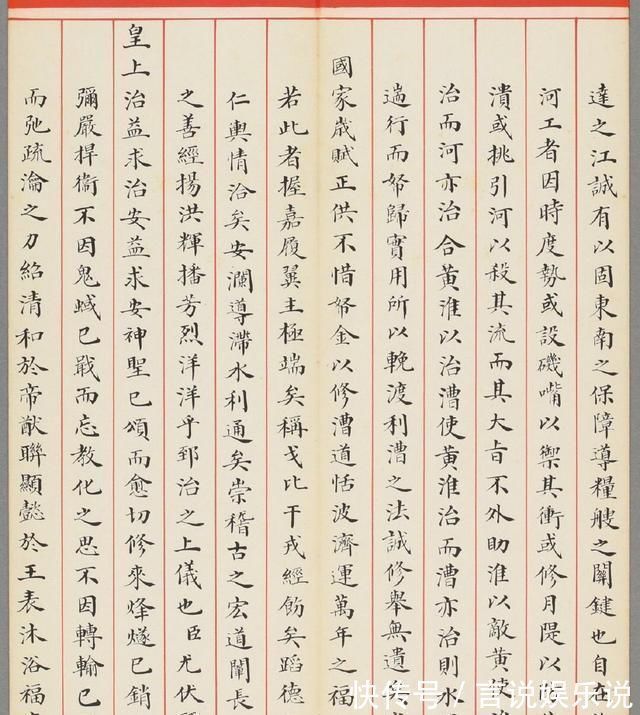 達之江誠有以固東南之保障導糧艘之關鍵也自在
河工者因時度勢或設磯嘴以禦其衝或修月隄以
潰或挑引河以殺其流而其大旨不外助淮以敵黃使
治而河亦治合黃淮以治漕使黃淮治而漕亦治則水
遄行而帑歸實用所以輓渡利漕之法誠修舉無遺
國家歲賦正供不惜帑金以修漕道恬波濟運萬年之福
若此者握嘉履翼主極端矣稱戈比干戎經飭矣蹈德
仁輿情洽矣安瀾導滯水利通矣崇稽古之宏道闡長
之善經揚洪輝播芳烈洋洋乎郅治之上儀也臣尤伏
皇上治益求治安益求安神聖已頌而愈切修來烽燧已銷
彌嚴捍衞不因鬼蜮已戢而忘教化之思不因轉輸已
而弛疏瀹之力紹清和於帝猷聯顯懿於王表沐浴福
快传号/言说娱乐说